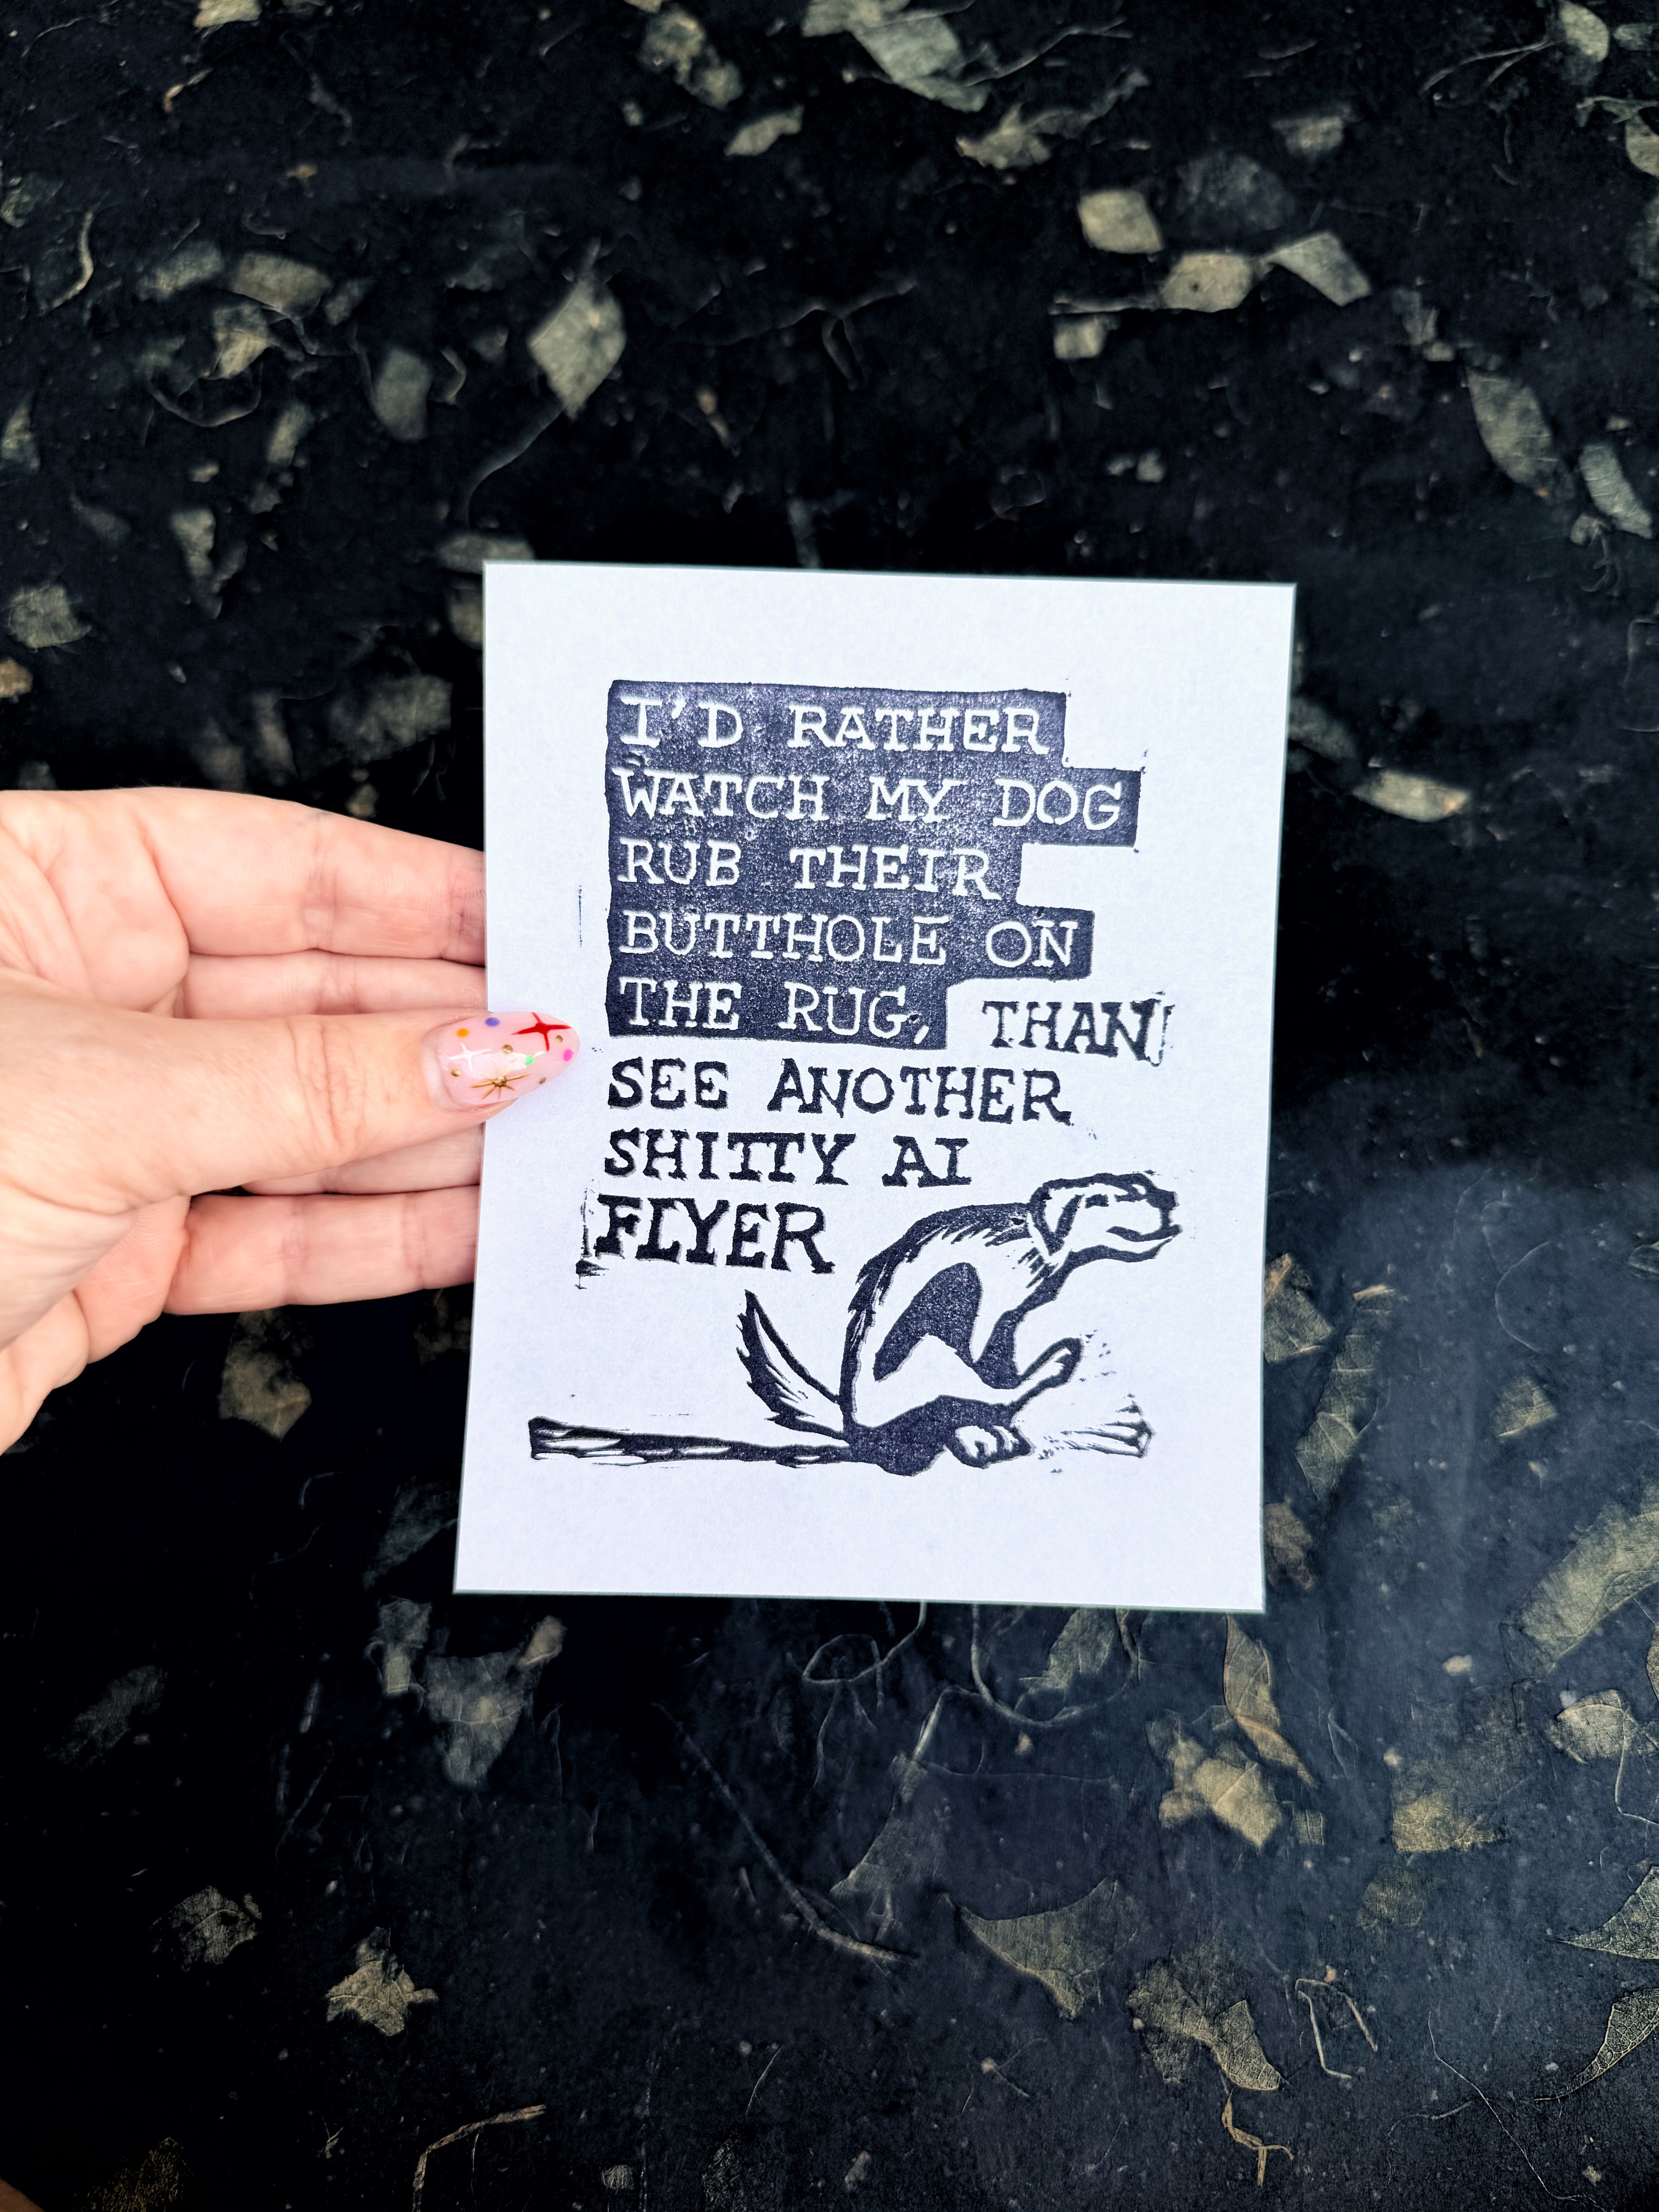 I'D RATHER
WATCH MY DOG
RUB THEIR
BUTTHOLE ON
THE RUG, THAN
SEE ANOTHER
SHITTY AI
FLYER